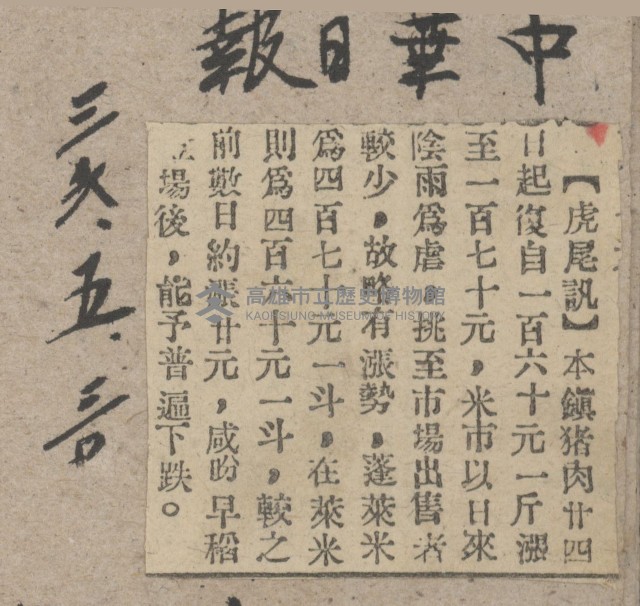 中華日報
【虎尾訊】本鎮猪肉廿四
日起復自一百六十元一斤漲
至一百七十元，米市以日來
陰雨爲虐 挑至市場出售者
較少，故略有漲勢，蓬萊米
爲四百七十元一斗，在萊米
則爲四百六十元一斗，較之
前數日約漲廿元，咸盼早稻
場後，能予普遍下跌。
五、
高雄市立歷史博物館
KAOHSIUNG MUSEUM OF HISTORY